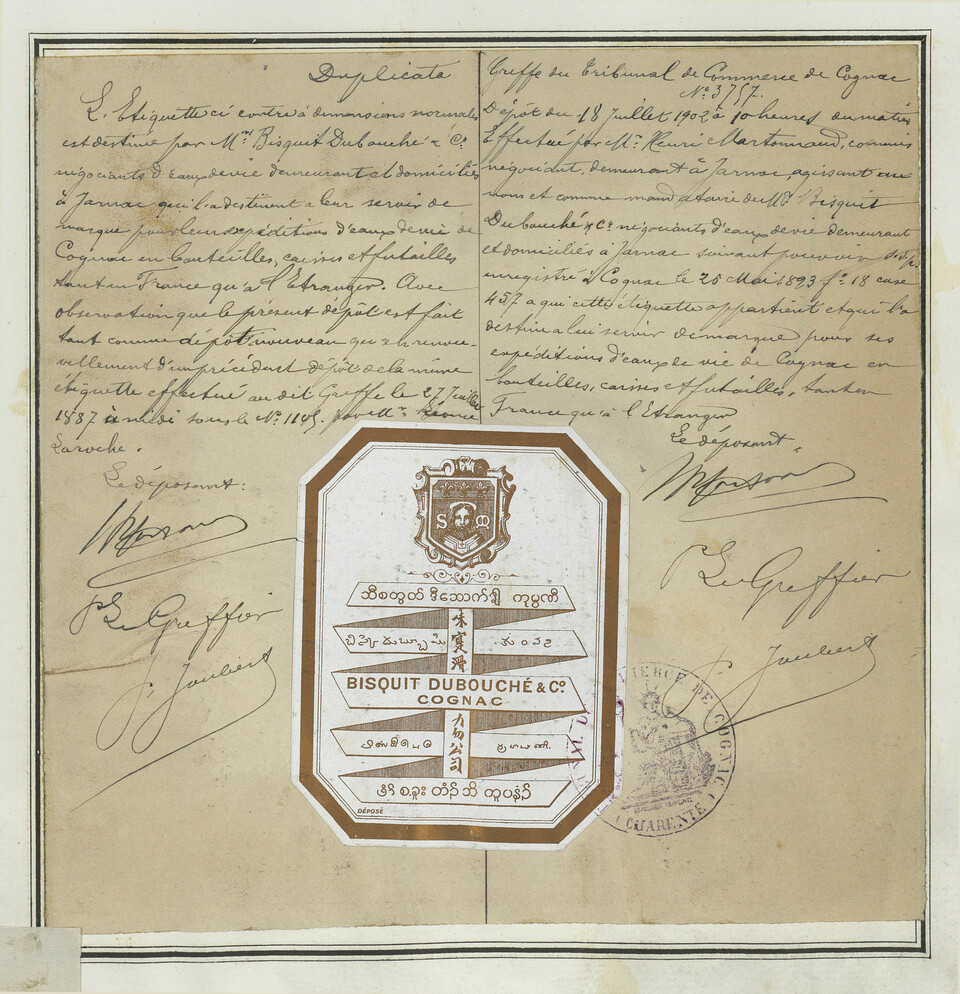 Duplicata
L'Etiquette ci contre à dimensions normales
est destinée par Mrs Bisquit Dubouché & Co
négociants d'eaux de vie demeurant et domiciliés
à Jarnac qui l'a destinent à leur servir de
marque pour leurs expéditions d'eaux de vie de
Cognac en bouteilles, caisses et futailles
tant en France qu'à l'Etranger. Avec
observation que le présent dépôt est fait
tant comme dépôt nouveau qu'en renou-
vellement d'un précédent dépôt de la même
étiquette effectué au dit Greffe le 27 Juillet
1887 à midi sous le No 1145. par Mr Léonce
Laroche.
Le déposant:
Le Greffier
J. Joubert
Greffe du Tribunal de Commerce de Cognac
No 3757.
Dépôt du 18 Juillet 1902 à 10 heures du matin
Effectué par Mr Henri Martonnaud, commis
négociant, demeurant à Jarnac, agissant au
nom et comme mandataire de Mrs Bisquit
Dubouché & Co négociants d'eaux de vie demeurant
et domiciliés à Jarnac suivant pouvoir s.s.p.
enregistré à Cognac le 25 Mai 1893 fo 18 case
457 a qui cette étiquette appartient et qui l'a
destine a lui servir de marque pour ses
expéditions d'eaux de vie de Cognac en
bouteilles, caisses et futailles, tant en
France qu'à l'Etranger
Le déposant,
Le Greffier
J. Joubert
S M
ဘီစတွတ် ဒီဘောက်၍ ကုမ္ပဏီ
BISQUIT DUBOUCHÉ & Co.
COGNAC
力勿公司
DÉPOSÉ
DE COGNAC